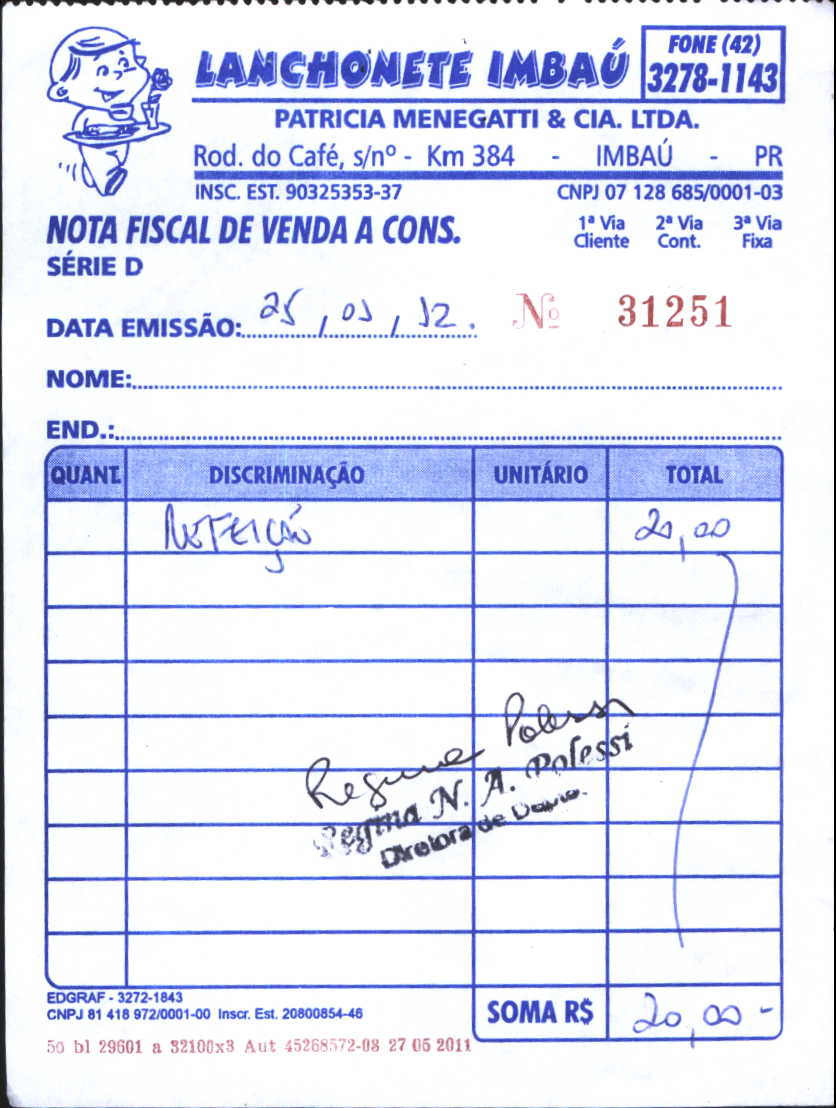 LANCHONETE IMBAÚ
FONE (42)
3278-1143
PATRICIA MENEGATTI & CIA. LTDA.
Rod. do Café, s/nº - Km 384 - IMBAÚ - PR
INSC. EST. 90325353-37 CNPJ 07 128 685/0001-03
NOTA FISCAL DE VENDA A CONS.
1ª Via Cliente 2ª Via Cont. 3ª Via Fixa
SÉRIE D
DATA EMISSÃO: 25, 01, 12. Nº 31251
NOME:
END.:
QUANT. DISCRIMINAÇÃO UNITÁRIO TOTAL
REFEIÇÃO 20,00
Regina Polessi
Regina N. A. Polessi
Diretora de Depto.
EDGRAF - 3272-1843
CNPJ 81 418 972/0001-00 Inscr. Est. 20800854-46
SOMA R$ 20,00 -
50 bl 29601 a 32100x3 Aut 45268572-08 27 05 2011